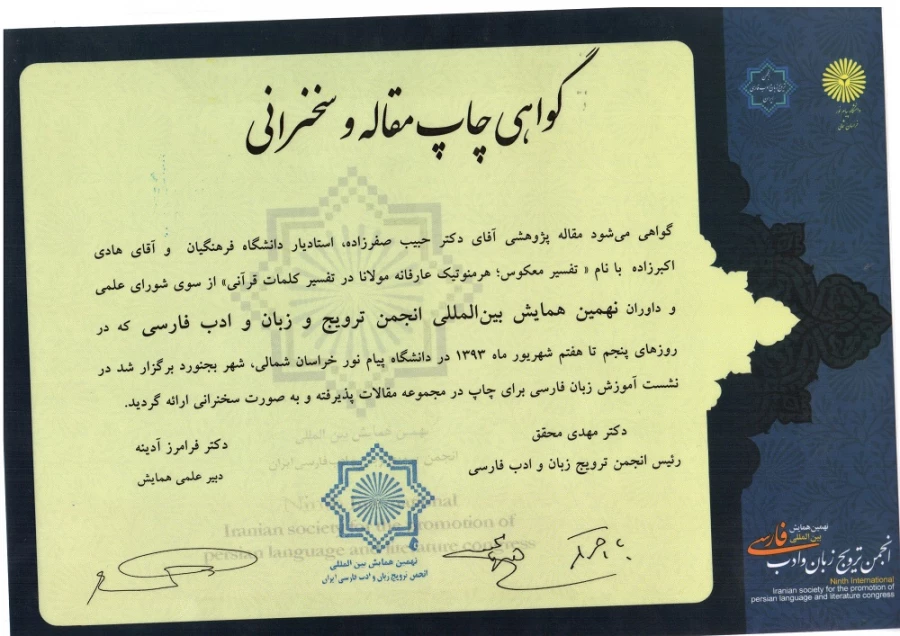 گواهی چاپ مقاله و سخنرانی
گواهی می‌شود مقاله پژوهشی آقای دکتر حبیب صفرزاده، استادیار دانشگاه فرهنگیان و آقای هادی
اکبرزاده با نام « تفسیر معکوس؛ هرمنوتیک عارفانه مولانا در تفسیر کلمات قرآنی» از سوی شورای علمی
و داوران نهمین همایش بین‌المللی انجمن ترویج و زبان و ادب فارسی که در
روزهای پنجم تا هفتم شهریور ماه ۱۳۹۳ در دانشگاه پیام نور خراسان شمالی، شهر بجنورد برگزار شد در
نشست آموزش زبان فارسی برای چاپ در مجموعه مقالات پذیرفته و به صورت سخنرانی ارائه گردید.
دکتر مهدی محقق
رئیس انجمن ترویج زبان و ادب فارسی
دکتر فرامرز آدینه
دبیر علمی همایش
نهمین همایش بین المللی
انجمن ترویج زبان و ادب فارسی ایران
Iranian society for the promotion of
persian language and literature congress
نهمین همایش بین المللی
انجمن ترویج زبان و ادب فارسی ایران
نهمین همایش
بین المللی
انجمن ترویج زبان و ادب فارسی
Ninth International
Iranian society for the promotion of
persian language and literature congress